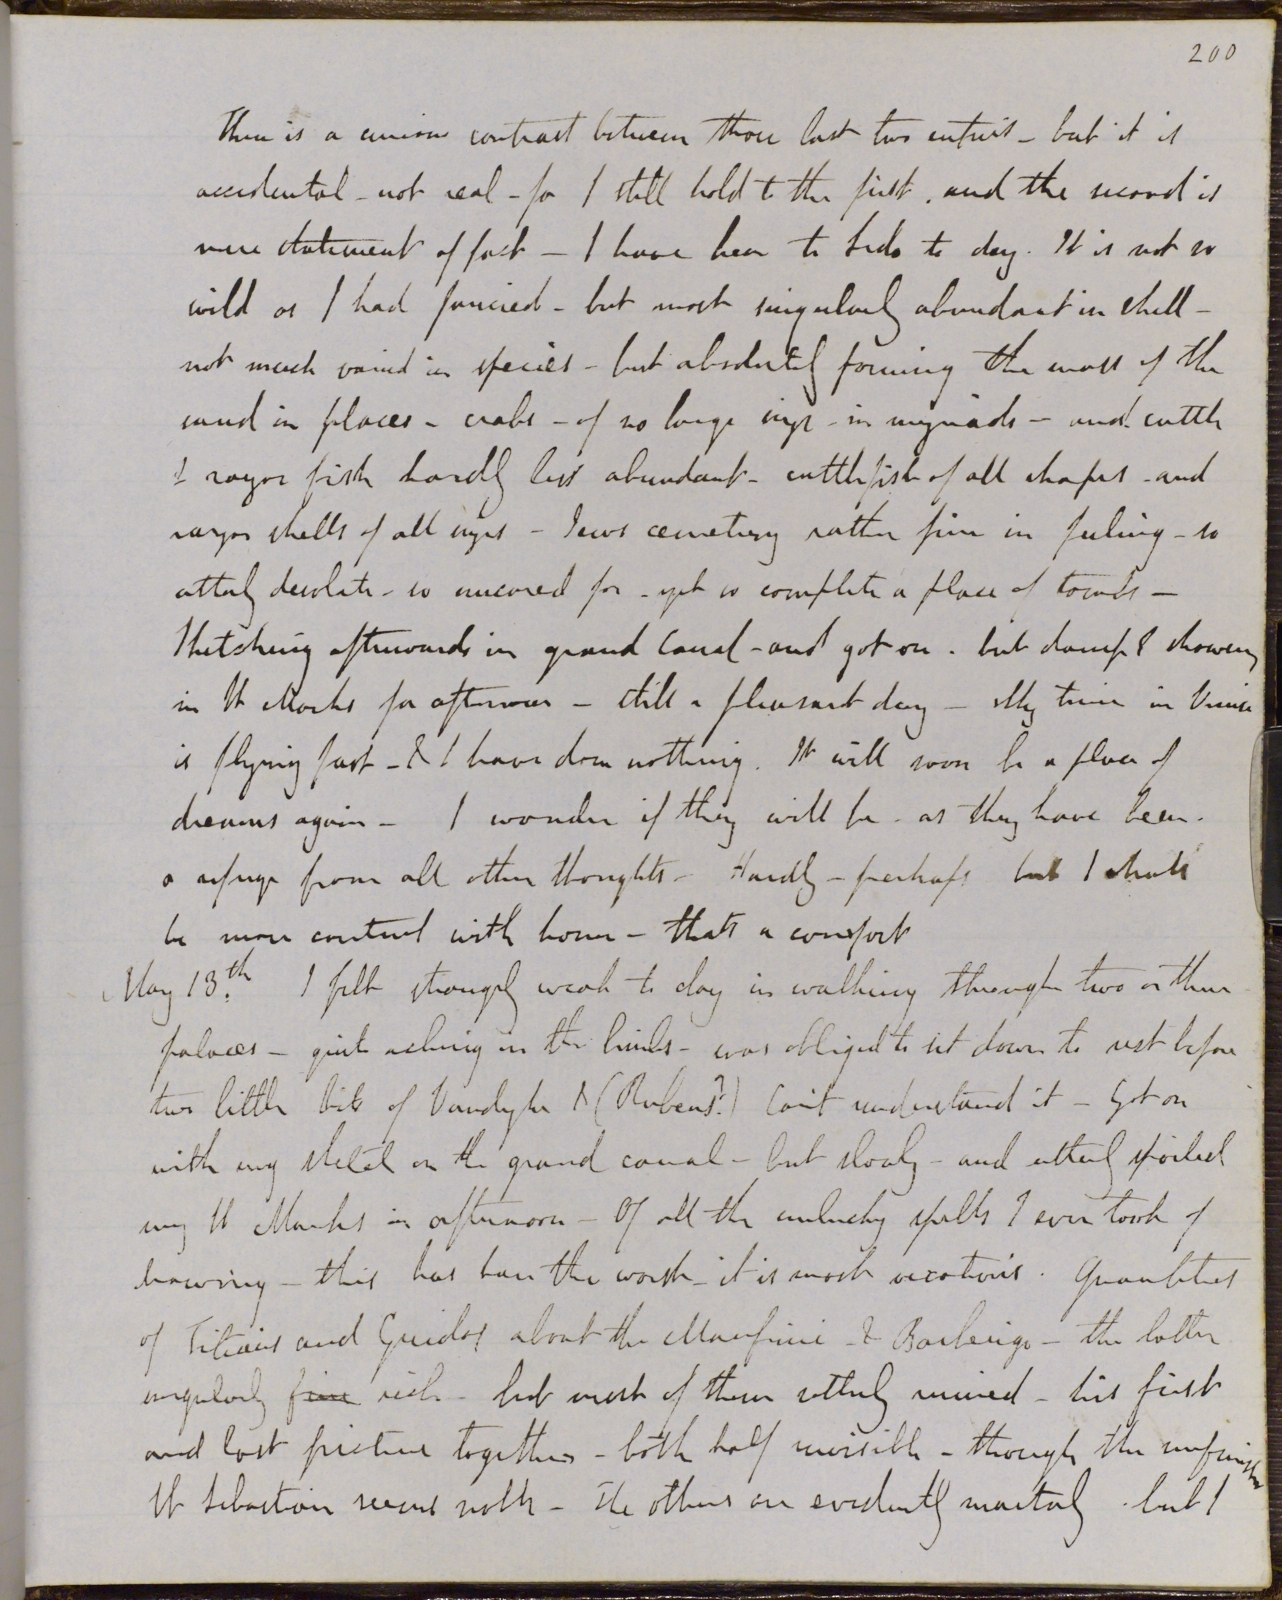 200
There is a curious contrast between those last two entries - but it is
accidental - not real - for I still hold to the first, and the second is
mere statement of fact - I have been to Lido to day. It is not so
wild as I had fancied - but most singularly abundant in shell -
not much varied in species - but absolutely forming the mass of the
sand in places - crabs - of no large size - in myriads - and cuttle
& razor fish hardly less abundant - cuttlefish of all shapes - and
razor shells of all sizes - Jews cemetery rather fine in feeling - so
utterly desolate - so uncared for - yet so complete a place of tombs -
Sketching afterwards in grand Canal - and got on - but damp & showery
in St Marks for afternoon - still a pleasant day - My time in Venice
is flying fast - & I have done nothing. It will soon be a place of
dreams again - I wonder if they will be - as they have been -
a refuge from all other thoughts - Hardly - perhaps but I shall
be more content with home - thats a comfort
May 13th. I felt strangely weak to day in walking through two or three
palaces - quite aching in the limbs - was obliged to sit down to rest before
two little bits of Vandyke & (Rubens?) Can't understand it - Got on
with my sketch on the grand canal - but slowly - and utterly spoiled
my St Marks in afternoon - Of all the unlucky spells I ever took of
drawing - this has been the worst - it is most vexatious. Quantities
of Titians and Guidos about the Manfrini & Barberigo - the latter
singularly fine rich - but most of them utterly ruined - his first
and last picture together - both half invisible - though the unfinished
St Sebastian seems noble - The others are evidently masterly - but I